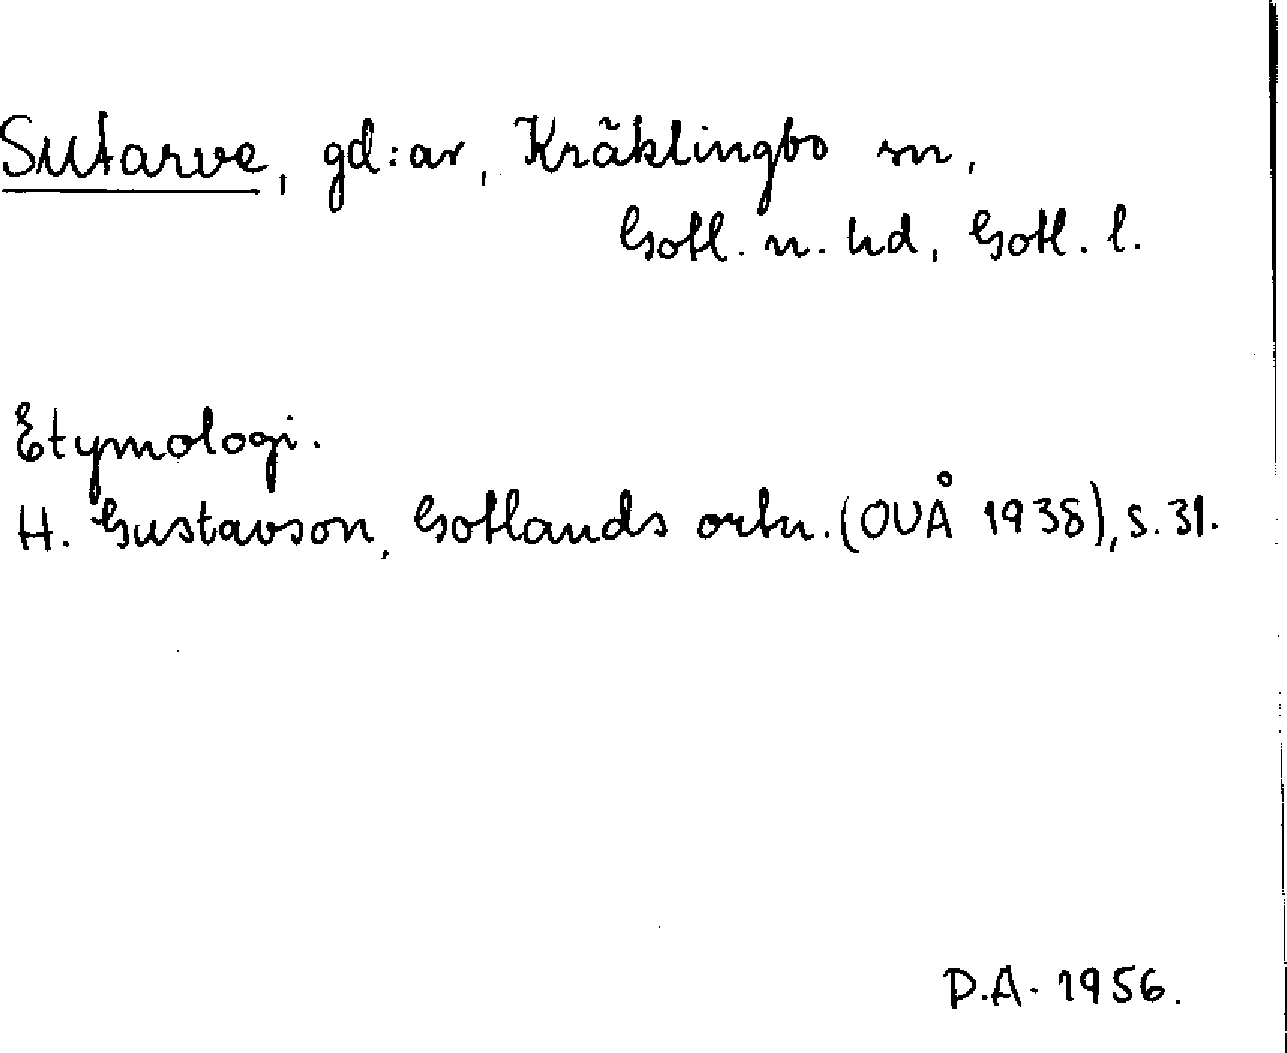 Sutarve, gd:ar, Kräklingbo sn,
Gotl. n. hd, Gotl. l.
Etymologi.
H. Gustavson, Gotlands ortn. (OUÅ 1938), s. 31.
D.A. 1956.